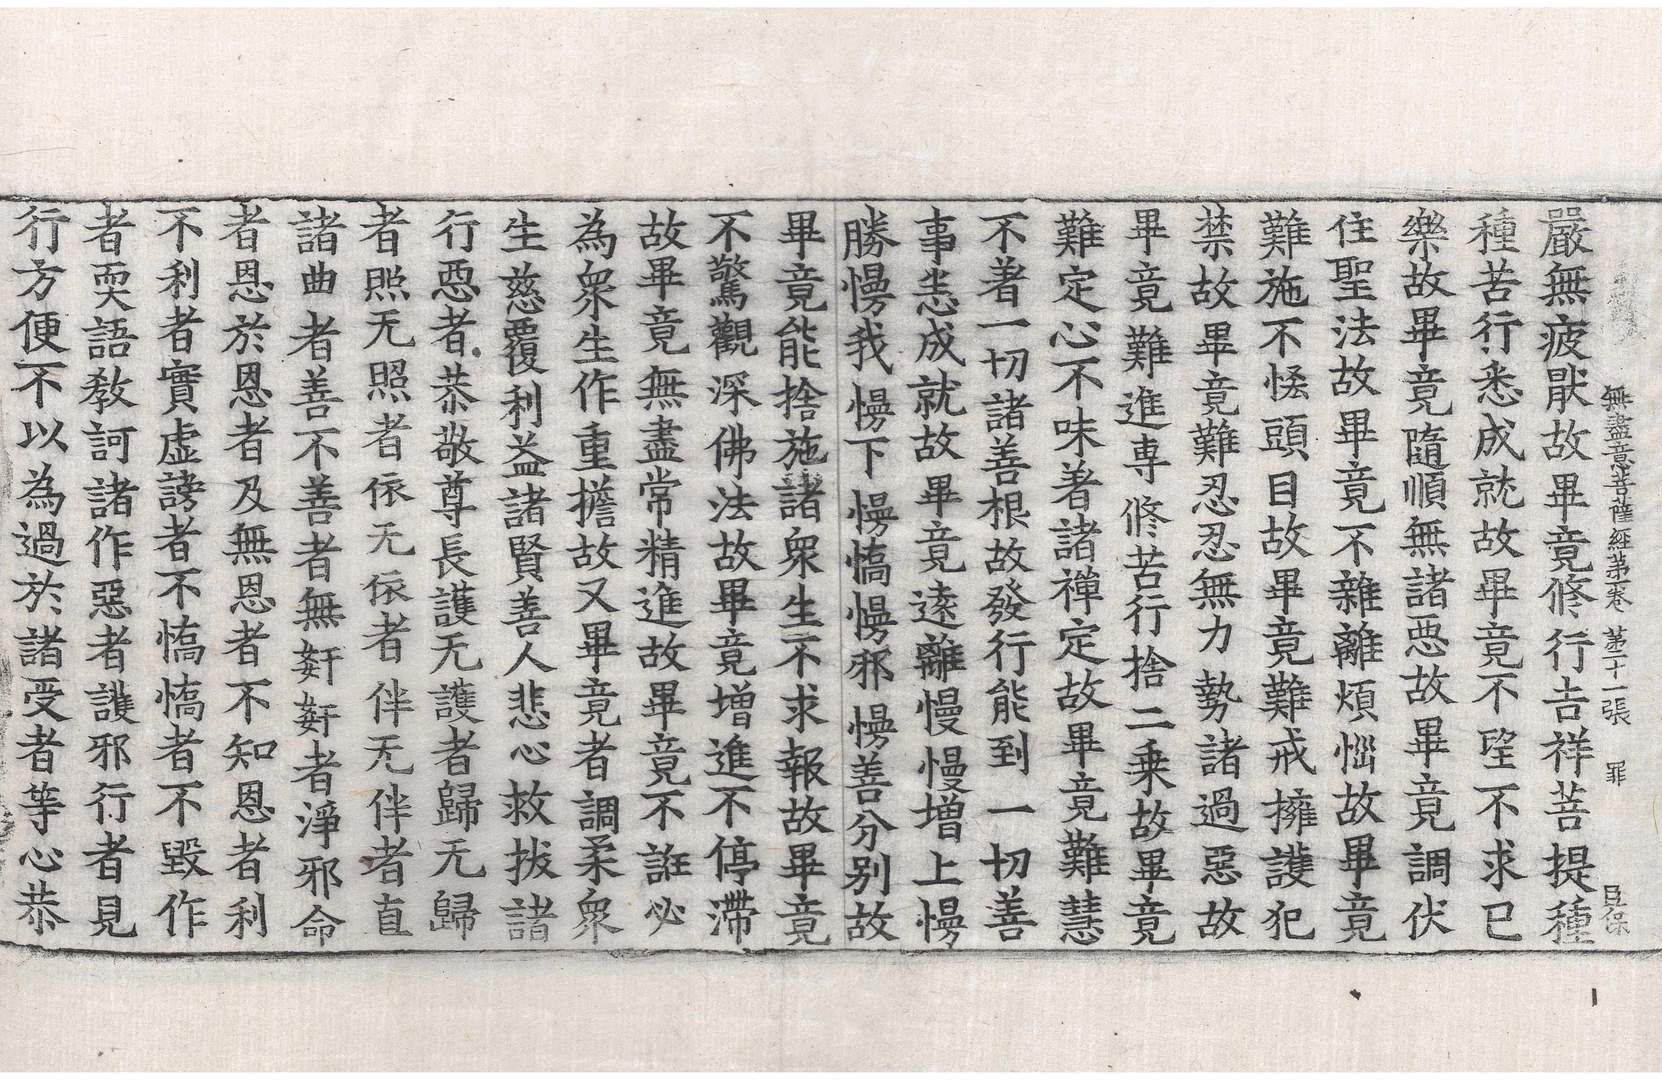 無盡意菩薩經第一卷 第二十一張 罪 臣保
嚴無疲猒故畢竟修行吉祥菩提種
種苦行悉成就故畢竟不望不求已
樂故畢竟隨順無諸惡故畢竟調伏
住聖法故畢竟不雜離煩惱故畢竟
難施不悋頭目故畢竟難戒擁護犯
禁故畢竟難忍忍無力勢諸過惡故
畢竟難進專修苦行捨二乗故畢竟
難定心不味著諸禪定故畢竟難慧
不著一切諸善根故發行能到一切善
事悉成就故畢竟遠離慢慢增上慢
勝慢我慢下慢憍慢邪慢善分别故
畢竟能捨施諸衆生不求報故畢竟
不驚觀深佛法故畢竟增進不停滯
故畢竟無盡常精進故畢竟不誑必
為衆生作重擔故又畢竟者調柔衆
生慈覆利益諸賢善人悲心救拔諸
行惡者恭敬尊長護无護者歸无歸
者照无照者依无依者伴无伴者直
諸曲者善不善者無姧姧者淨邪命
者恩於恩者及無恩者不知恩者利
不利者實虛謗者不憍憍者不毀作
者耎語敎訶諸作惡者護邪行者見
行方便不以為過於諸受者等心恭